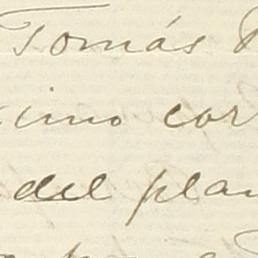 Tomás
imo cor
del plan